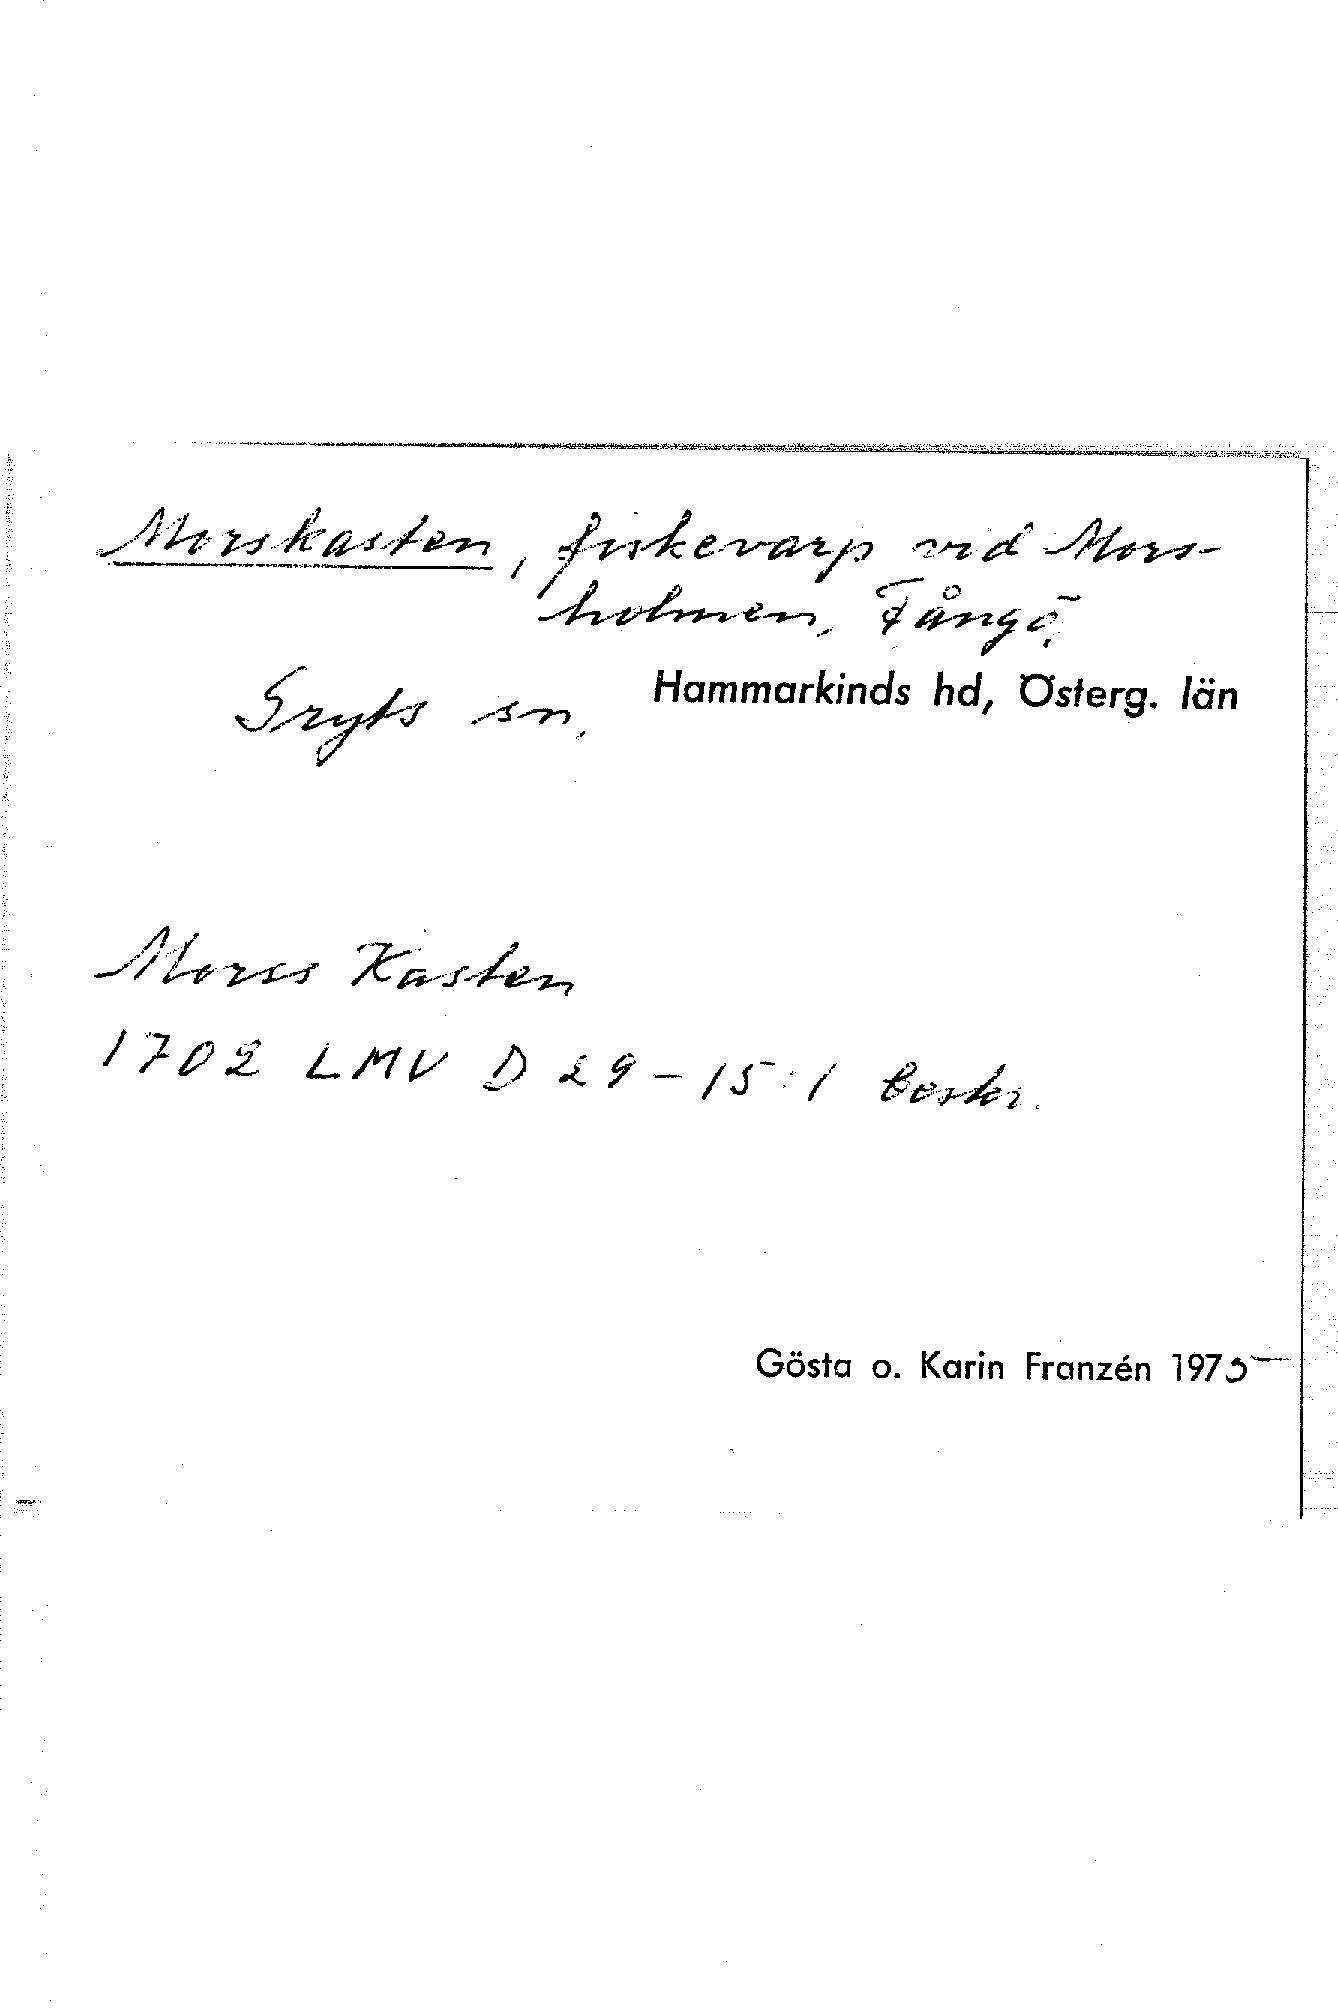 Morskasten, fiskevarp vid Mors-
holmen, Fångö,
Gryts sn. Hammarkinds hd, Österg. län
Morss Kasten
1702 LMV D 29-15:1 beskr.
Gösta o. Karin Franzén 1975